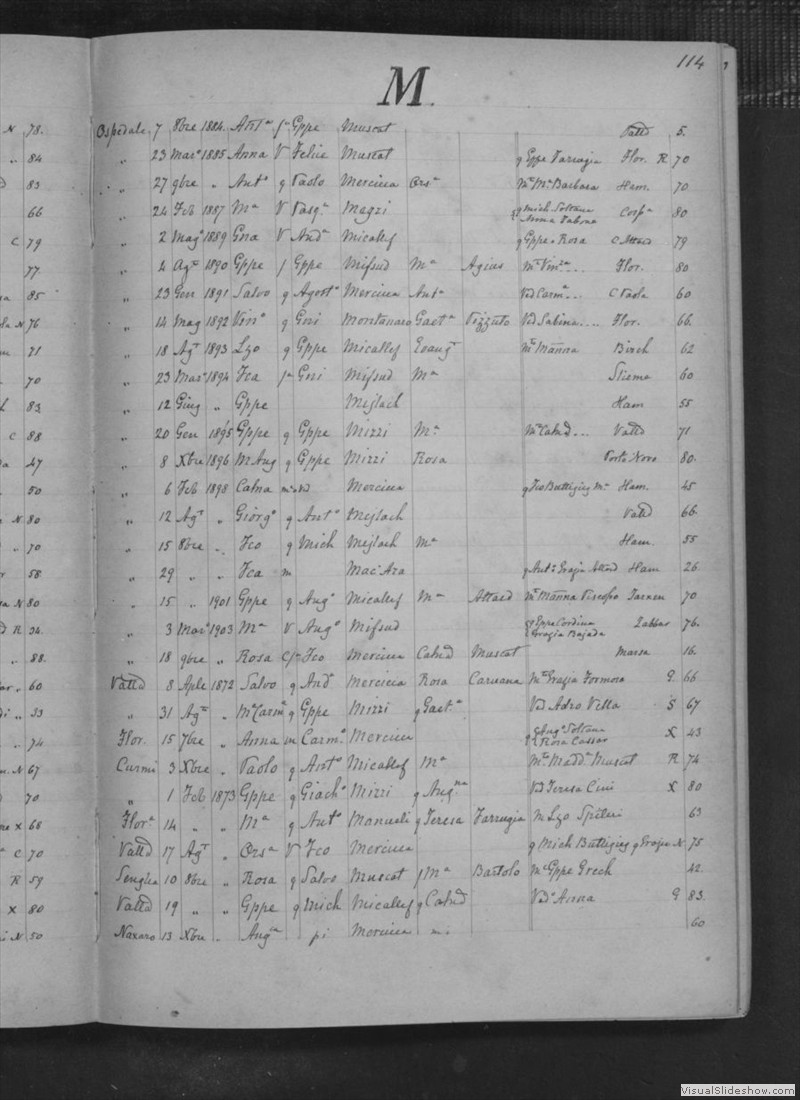 114
M.
N 78.
" 84
83
66
C 79
77
85
N 76
71
70
83
C 88
47
50
N 80
" 70
58
N 80
R 34
" 88.
" 60
" 33
" 74
N 67
70
X 68
C 70
R 59
X 80
N 50
Ospedale 7 8bre 1884 Anta f Gppe Muscat Valtd 5.
" 23 Maro 1885 Anna V Felice Muscat q Gppe Farrugia Flor. R 70
" 27 9bre " Anto q Paolo Mercieca Orsa Ma Ma Barbara Ham. 70
" 24 Feb 1887 Ma V Pasqe Magri q Mich Soltana Anna Vabona Corpa 80
" 2 Mago 1889 Gna V Anda Micallef q Gppe e Rosa C Attard 79
" 4 Agto 1890 Gppe f Gppe Mifsud Ma Agius Mo Vinza... Flor. 80
" 23 Gen 1891 Salvo q Agosto Mercieca Anta Vedo Carma... C Paola 60
" 14 Mag 1892 Vino q Gni Montanaro Gaeta Vizzuto Vedo Sabina.... Flor. 66.
" 18 Agto 1893 Lzo q Gppe Micallef Evanga Mo Manna Birch 62
" 23 Maro 1894 Fca f Gni Mifsud Ma Sliema 60
" 12 Giug " Gppe Mejlach Ham 55
" 20 Gen 1895 Gppe q Gppe Mizzi Ma Mo Catnd... Valtd 71
" 8 Xbre 1896 M Aug q Gppe Mizzi Rosa Porto Novo 80.
" 6 Feb 1898 Catna Mercieca q Fco Buttigieg Ma Ham. 45
" 12 Agto " Giorgo q Anto Mejlach Valtd 66.
" 15 8bre " Fco q Mich Mejlach Ma Ham. 55
" 29 " " Fca m Mac Ara q Anto Grazia Attard Ham 26
" 15 " 1901 Gppe q Augo Micallef Ma Attard Mo Manna Viscopo Tarxen 70
" 3 Maro 1903 Ma V Augo Mifsud q Gppe Cordina Grazia Bajada Zabbar 76.
" 18 9bre " Rosa Fco Mercieca Catnd Muscat Marsa 16.
Valtd 8 Aple 1872 Salvo q Ando Mercieca Rosa Caruana Mo Grazia Formosa G. 66
" 31 Agto " Ma Carma q Gppe Mizzi q Gaeta Vedo Adeo Vella S 67
Flor. 15 7bre " Anna m Carmo Mercieca q Augo Soltana Rosa Cassar X 43
Curmi 3 Xbre " Paolo q Anto Micallef Ma Mo Madda Muscat R 74
" 1 Feb 1873 Gppe q Giacho Mizzi q Augna Vedo Teresa Cini X 80
Flora 14 " " Ma q Anto Manueli q Teresa Farrugia M Lzo Spiteri 63
Valtd 17 Agto " Orsa V Fco Mercieca q Mich Buttigieg q Grazia N. 75
Senglea 10 8bre " Rosa q Salvo Muscat f Ma Bartolo Mo Gppe Grech 42.
Valtd 19 " " Gppe q Mich Micallef q Catnd Vedo Anna G 83.
Naxaro 13 Xbre " Anga pi Mercieca 60
VisualSlideshow.com